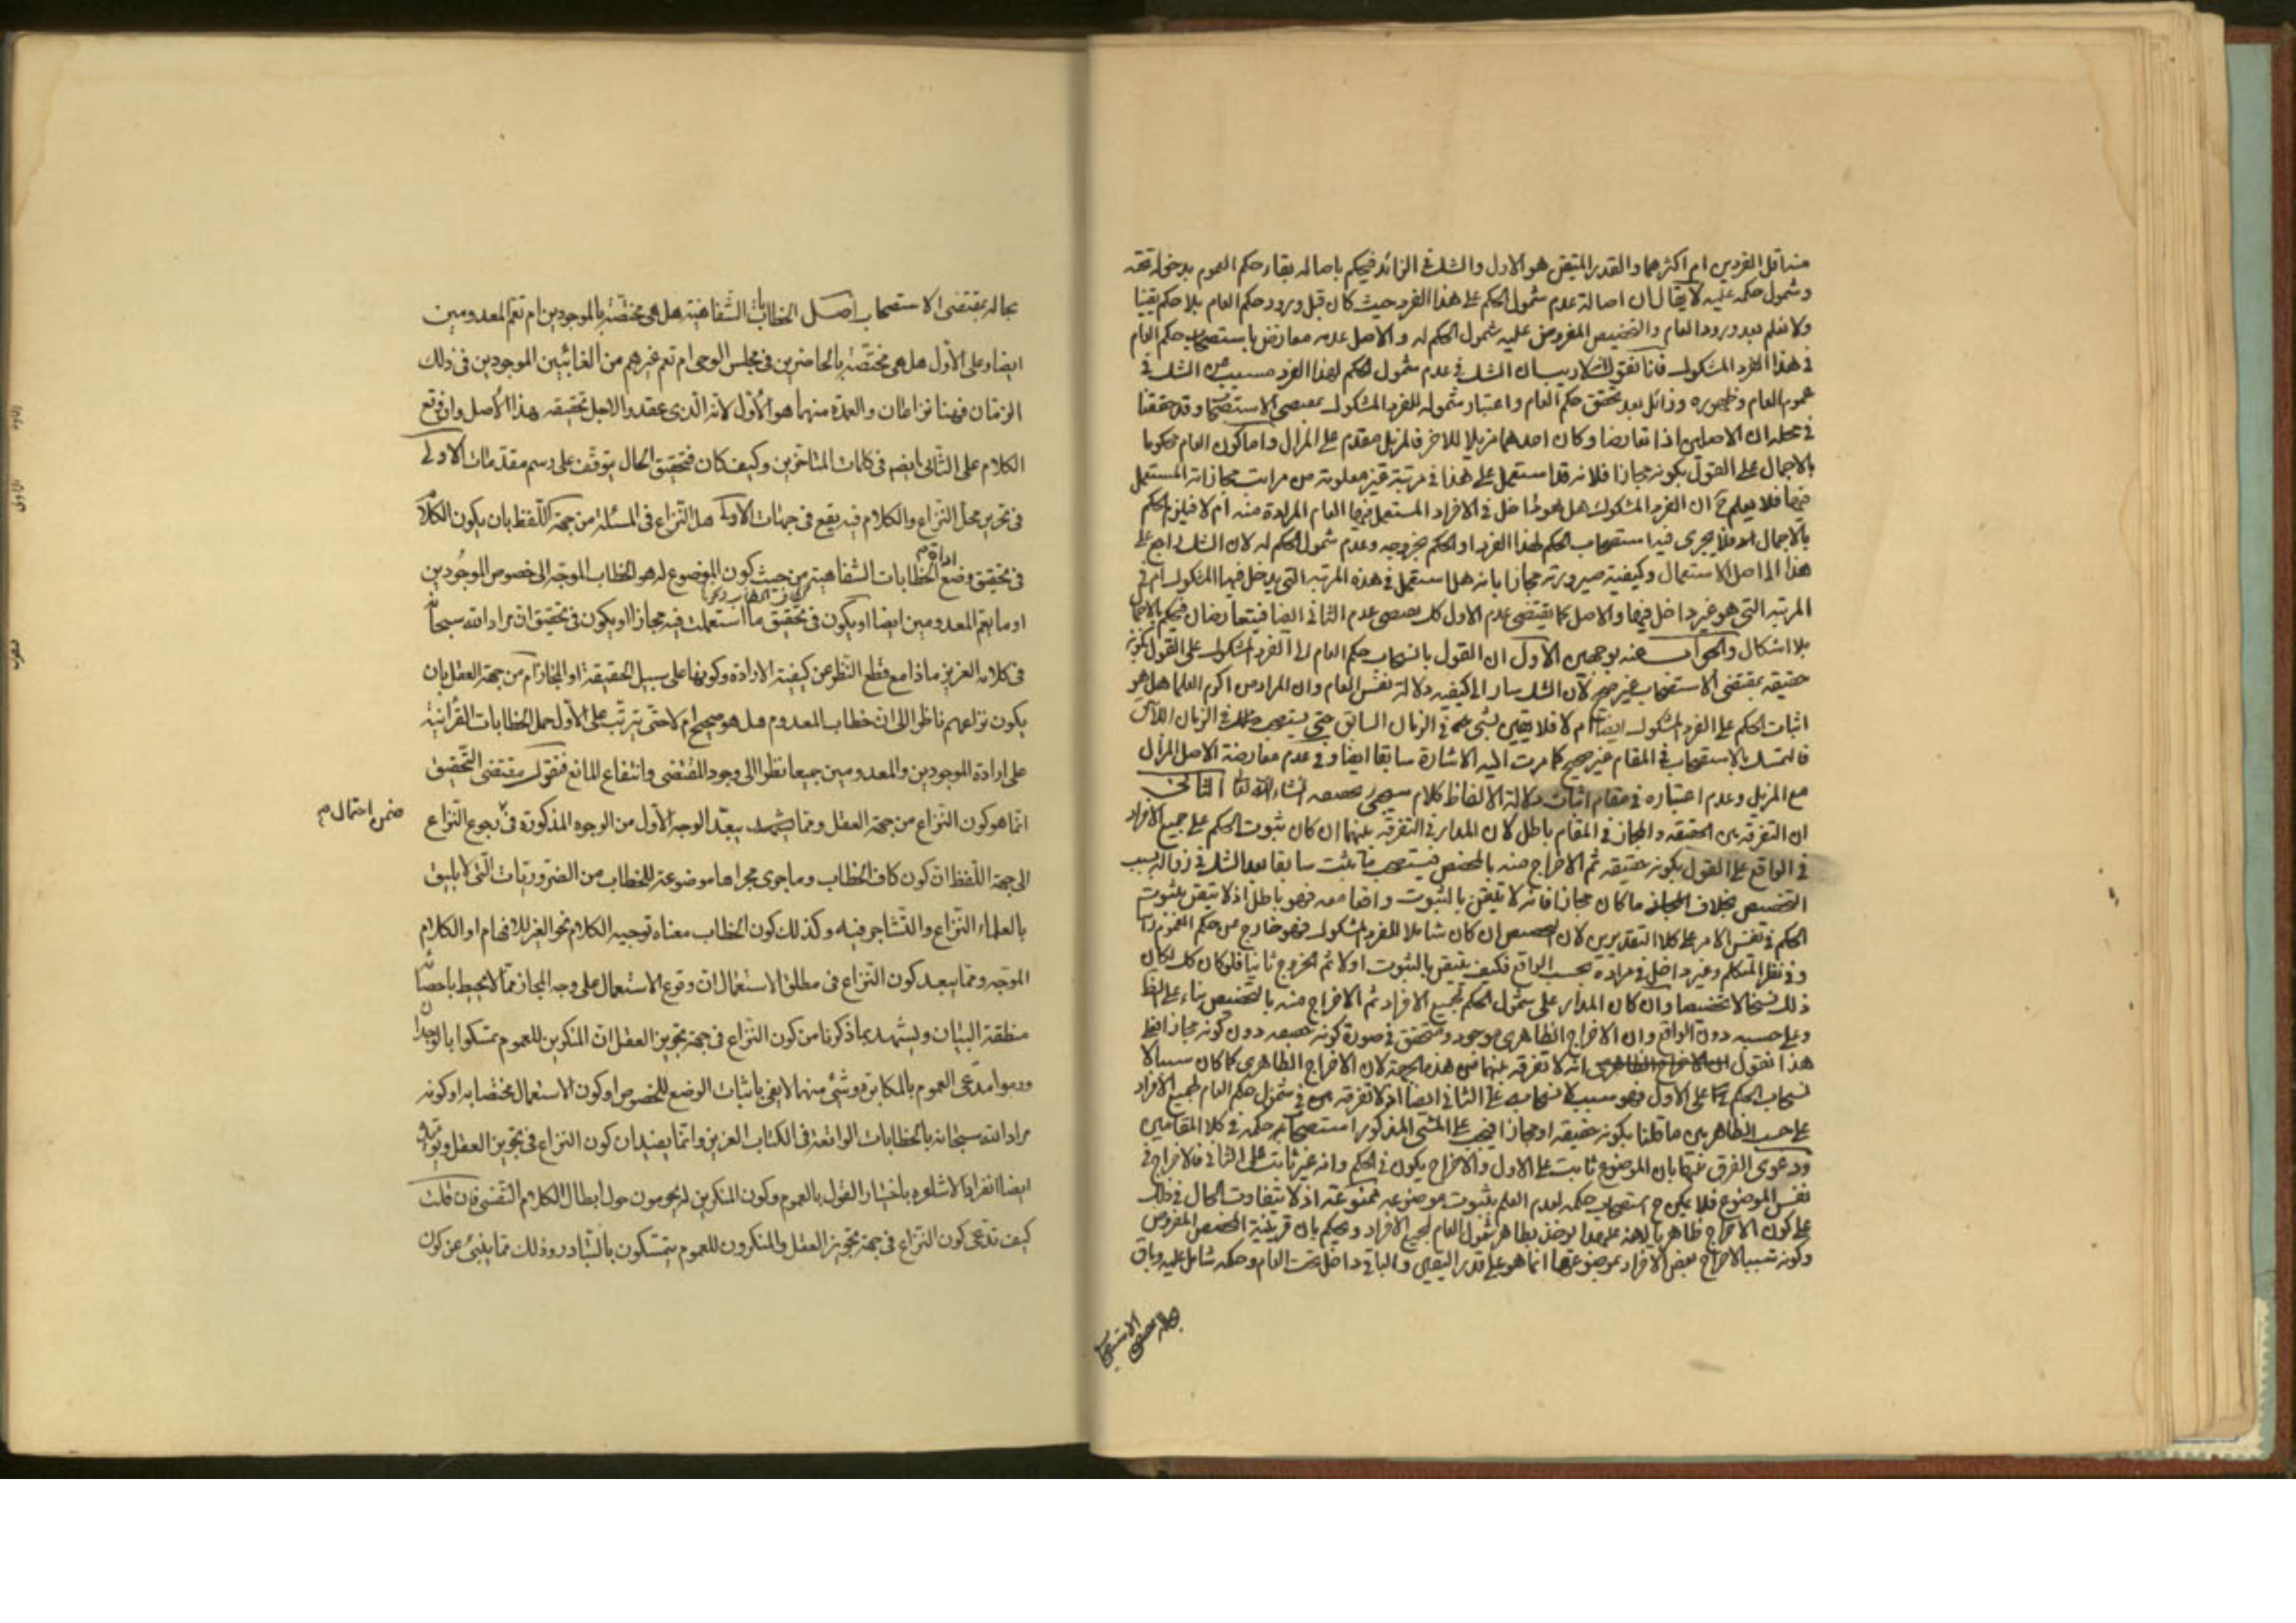 منه اقل الفردين ام اكثرهما والقدر المتيقن هو الاول والشك في الزائد فيحكم باصالة بقاء حكم العموم بدخوله تحته
وشمول حكمه عليه لا يقال ان اصالة عدم شمول الحكم على هذا الفرد حيث كان قبل ورود حكم العام بلا حكم يقينا
ولا نعلم بعد ورود العام والتخصيص المفروض عليه شمول الحكم له والاصل عدمه معارض باستصحاب حكم العام
في هذا الفرد المشكوك فانا نقول لا ريب ان الشك في عدم شمول الحكم لهذا الفرد مسبب عن الشك في
عموم العام وظهوره وزائل بعد تحقق حكم العام واعتبار شموله للفرد المشكوك بمقتضى الاستصحاب وقد حققنا
في محله ان الاصلين اذا تعارضا وكان احدهما مزيلا للاخر فالمزيل مقدم على المزال واما كون العام محكوما
بالاجمال على القول بكونه مجازا فلانه قد استعمل على هذا في مرتبة غير معلومة من مراتب مجازاته المستعمل
فيها فلا يعلم ح ان الفرد المشكوك هل هو داخل في الافراد المستعمل فيها العام المرادة منه ام لا فيلزم الحكم
بالاجمال فلا يجرى فيه استصحاب الحكم لهذا الفرد او الحكم بخروجه وعدم شمول الحكم له لان الشك راجع على
هذا الى اصل الاستعمال وكيفية صيرورته مجازا بانه هل استعمل في هذه المرتبة التي يدخل فيها المشكوك ام في
المرتبة التي هو غير داخل فيها والاصل كما يقتضى عدم الاول كك يقتضى عدم الثانى ايضا فيتعارضان فيحكم بالاجمال
بلا اشكال والجواب عنه بوجهين الاول ان القول بانسحاب حكم العام الى الفرد المشكوك على القول بكونه
حقيقة بمقتضى الاستصحاب غير صحيح لان الشك سار الى كيفية دلالة نفس العام وان المراد من اكرم العلماء هل هو
اثبات الحكم على الفرد المشكوك ايضا ام لا فلا يقين بشئ في الزمان السابق حتى يستصحب في الزمان اللاحق
فالتمسك بالاستصحاب في المقام غير صحيح كما مرت اليه الاشارة سابقا ايضا وفي عدم معارضة الاصل المزال
مع المزيل وعدم اعتباره في مقام اثبات دلالة الالفاظ كلام سيجئ تحقيقه انشاء الله تعالى الثانى
ان التفرقة بين الحقيقة والمجاز في المقام باطل لان المدار في التفرقة بينهما ان كان ثبوت الحكم على جميع الافراد
في الواقع على القول بكونه حقيقة ثم الاخراج منه بالمخصص فيستصحب ما ثبت سابقا بعد الشك في زواله بسبب
التخصيص بخلاف ما كان مجازا فانه لا يتيقن بالثبوت فهو باطل اذ لا تيقن بثبوت
الحكم في نفس الامر على كلا التقديرين لان المخصص ان كان شاملا للفرد المشكوك فهو خارج عن حكم العموم
وفي نظر المتكلم وغير داخل في مراده بحسب الواقع فكيف يتيقن بالثبوت اولا ثم الخروج ثانيا فلو كان كك لكان
ذلك نسخا لا تخصيصا وان كان المدار على شمول الحكم لجميع الافراد ثم الاخراج منه بالتخصيص بناء على الظ
وعلى حسبه دون الواقع وان الاخراج الظاهرى موجود ومتحقق في صورة كونه حقيقة دون كونه مجازا فمع
هذا نقول انه لا تفرقة بينهما من هذه الجهة لان الاخراج الظاهرى كما كان سببا لا
نسحاب الحكم على الاول فهو سبب لانسحابه على الثانى ايضا اذ لا تفرقة في شمول حكم العام لجميع الافراد
على حسب الظاهر بين ما قلنا بكونه حقيقة او مجازا فيجب على المشى المذكور استصحاب حكمه في كلا المقامين
ودعوى الفرق بينهما بان الموضوع ثابت على الاول والاخراج يكون في الحكم وانه غير ثابت على الثانى فالاخراج في
نفس الموضوع فلا يمكن ح استصحاب حكمه لعدم العلم بثبوت موضوعه ممنوعة اذ لا تتفاوت الحال في ذلك
على كون الاخراج ظاهريا يؤخذ بظاهر شمول العام لجميع الافراد ويحكم بان قرينة المخصص المفروض
وكونه سببا لاخراج بعض الافراد بموضوعها انما هو على قدر اليقين والباقى داخل تحت العام وحكمه شامل عليه وباق
بحاله بمقتضى الاستصحاب
بحاله بمقتضى الاستصحاب اصل الخطابات الشفاهية هل هى مختصّة بالموجودين ام تعم المعدومين
ايضا وعلى الاوّل هل هى مختصّة بالحاضرين فى مجلس الوحى ام تعم غيرهم من الغائبين الموجودين فى ذلك
الزمان فهنا نزاعان والعمدة منهما هو الاوّل لانه الّذى عقد والاجل تحقيقه هذا الاصل وان وقع
الكلام على الثّانى ايضم فى كلمات المتاخرين وكيف كان فتحقيق الحال يتوقّف على رسم مقدّمات الاولى
فى تحرير محل النّزاع والكلام فيه يقع فى جهات الاولى هل النّزاع فى المسئلة من جهة اللّفظ بان يكون الكلام
اداة م
فى تحقيق وضع الخطابات الشفاهية من حيث كون الموضوع له هو الخطاب الموجّه الى خصوص الموجُودين
او ما يعم المعدومين ايضا او يكون فى تحقيق ما استعملت فيه مجازا او يكون فى تحقيق انّ مراد الله سبحانه
فى كلامه العزيز ماذا مع قطع النّظر عن كيفية الارادة وكونها على سبيل الحقيقة او المجاز ام من جهة العقل بان
يكون نزاعهم ناظرا الى انّ خطاب المعدوم هل هو صحيح ام لا حتّى يترتّب على الاوّل حمل الخطابات القرأنيّة
على ارادة الموجودين والمعدومين جميعا نظرا الى وجود المقتضى وانتفاع المانع فنقول مقتضى التّحقيق
انّما هو كون النّزاع من جهة العقل وممّا يشهد ببعد الوجه الاوّل من الوجوه المذكورة فى رجوع النّزاع
ضمن احتمال م
الى جهة اللّفظ انّ كون كاف الخطاب وما جرى مجراها موضوعة للخطاب من الضّروريّات الّتى لا يليق
بالعلماء النّزاع والتّشاجر فيه وكذلك كون الخطاب معناه توجيه الكلام نحو الغير للافهام او الكلام
الموجّه وممّا يبعد كون النّزاع فى مطلق الاستعمال انّ وقوع الاستعمال على وجه المجاز ممّا لا يحيط باحصائه
منطقة البيان ويشهد بما ذكرنا من كون النّزاع فى جهة تجويز العقل انّ المنكرين للعموم تمسّكوا بالوجدان
ورموا مدّعى العموم بالمكابرة وشئ منهما لا يفى باثبات الوضع للخصوص او كون الاستعمال مختصّا به او كونه
مراد الله سبحانه بالخطابات الواقعة فى الكتاب العزيز وانّما يفيدان كون النزاع فى تجويز العقل ويؤيّده
ايضا انفراد الاشاعره باختيار القول بالعموم وكون المنكرين لم يحومون حول ابطال الكلام النّفسى فان قلت
كيف تدّعى كون النّزاع فى جهة تجويز العقل والمنكرون للعموم يتمسّكون بالتّبادر وذلك ممّا ينبئ عن كون